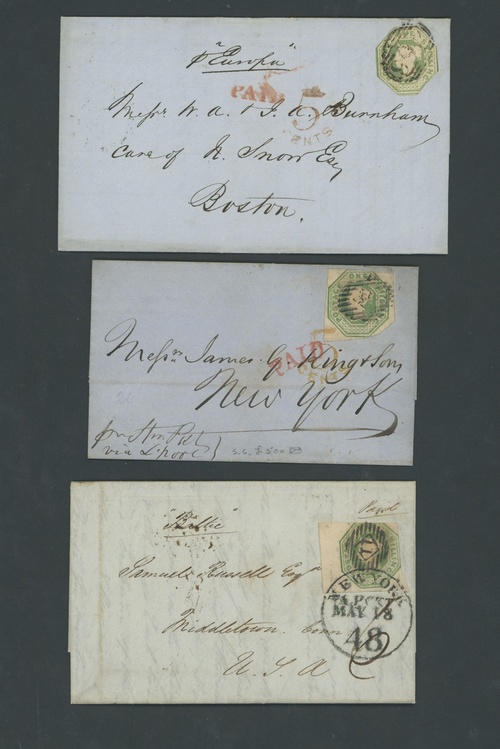 p "Europa"
PAID
5
CENTS
Messrs W. A. & J. A. Burnham
Care of N. Snow Esq
Boston.
POSTAGE ONE SHILLING
PAID
CENTS
Messrs James. G. King & Sons
New York
pr Stm Pkt
via L'pool
S.G. £500
"Baltic"
Paid
Samuel Russell Esqr
Middletown Conn
U. S. A
NEW YORK
MAY 18
48